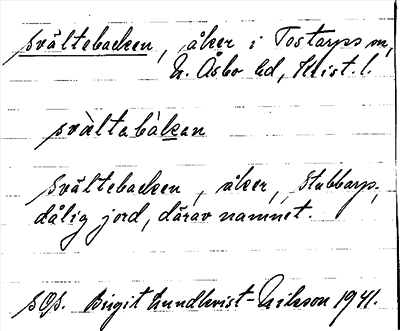 Svältebacken, åker i Tostarps sn,
N. Åsbo hd, Krist. l.
svàltabàkan
Svältebacken, åker, Stubbarp,
dålig jord, därav namnet.
sOp. Birgit Lundkvist-Nilsson 1941.